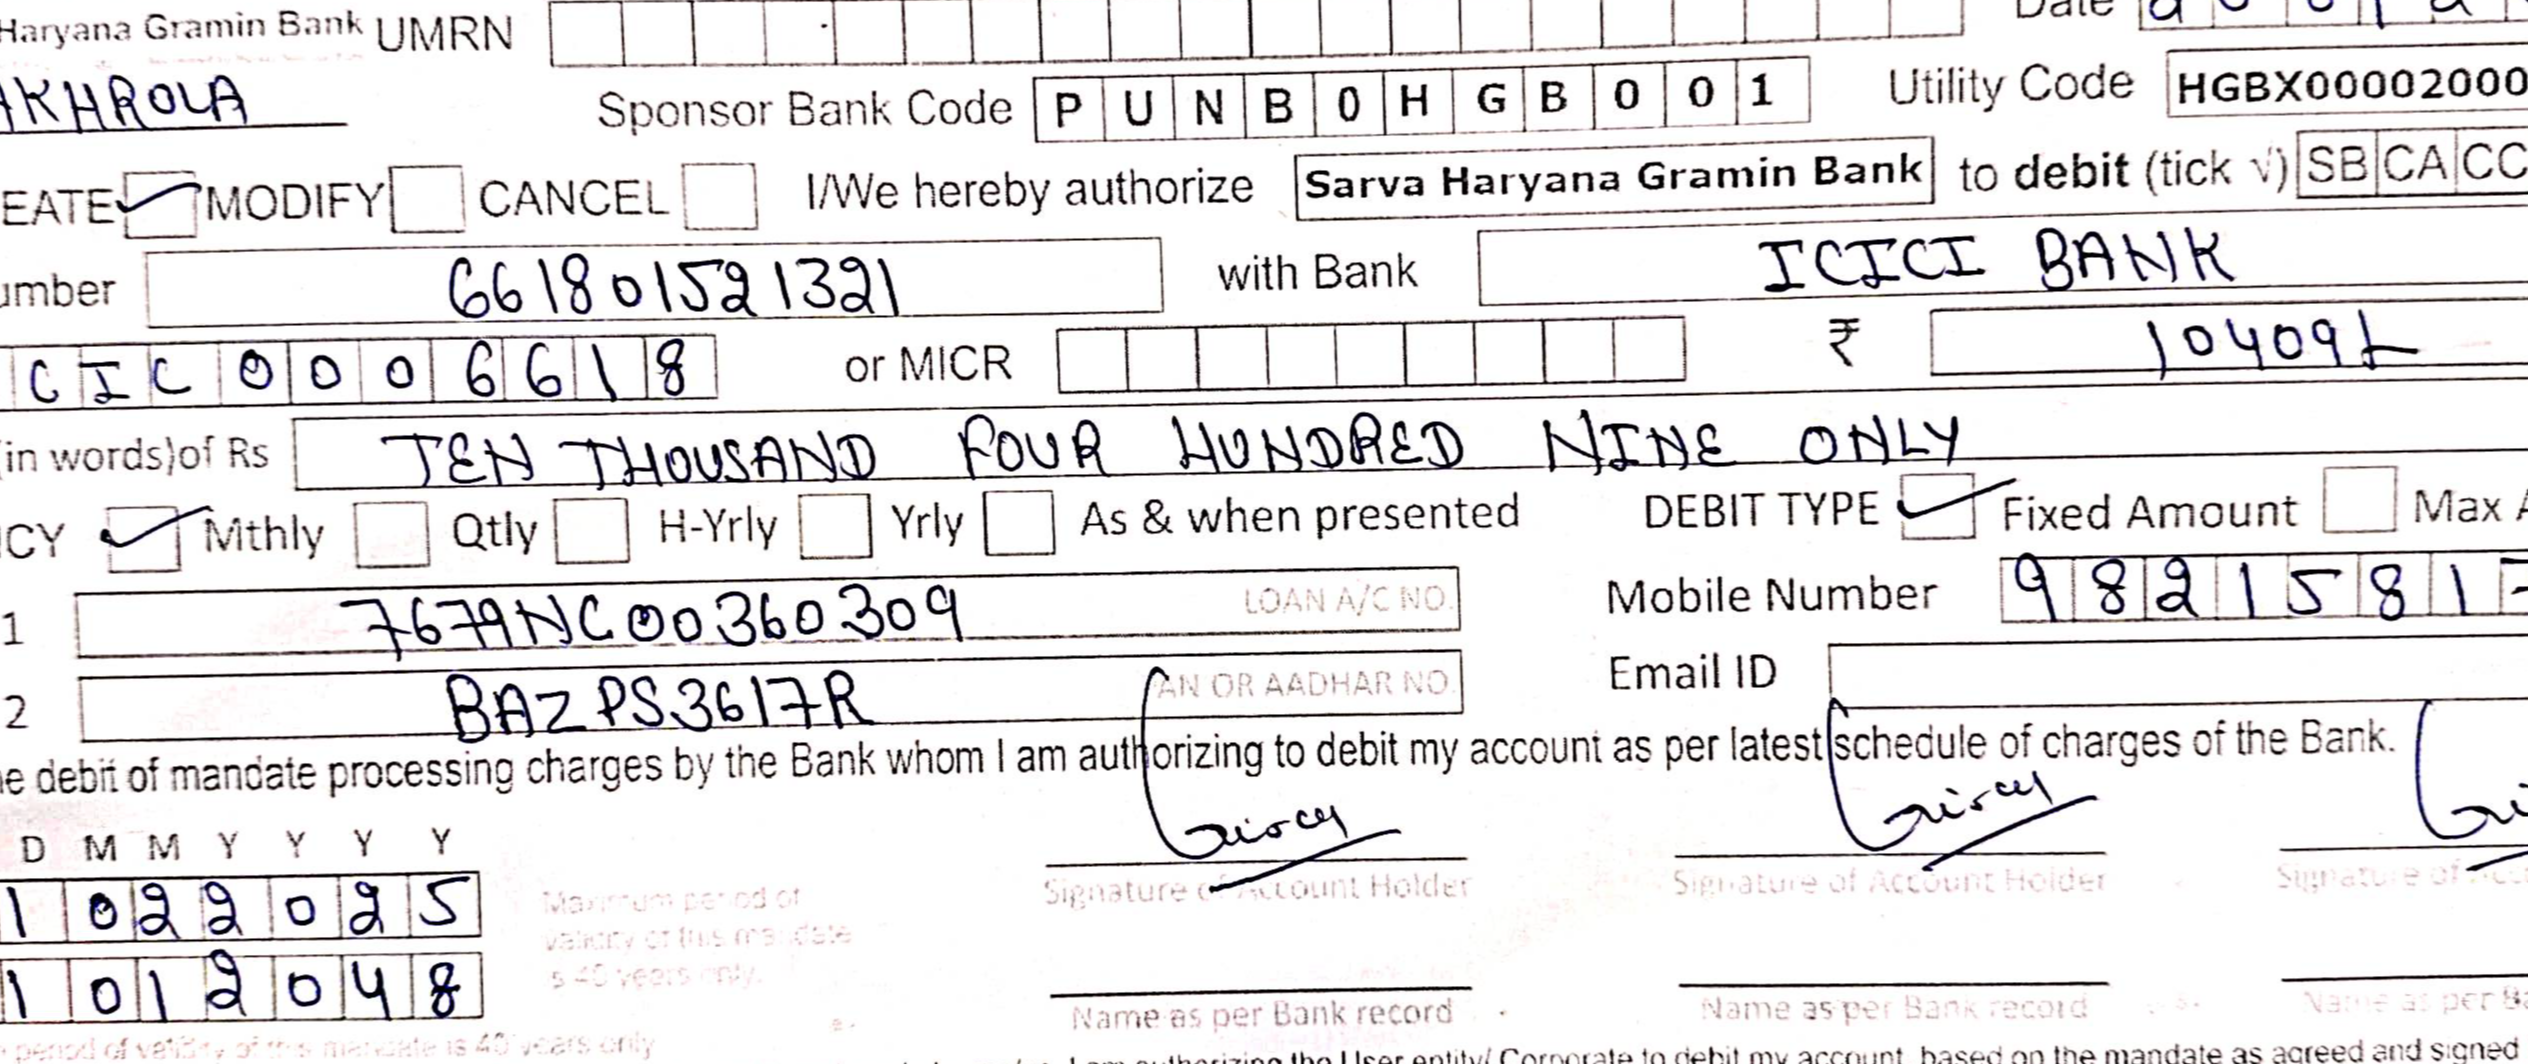 Haryana Gramin Bank UMRN Date
KHROLA Sponsor Bank Code P U N B 0 H G B 0 0 1 Utility Code HGBX00002000
EATE ✓ MODIFY CANCEL I/We hereby authorize Sarva Haryana Gramin Bank to debit (tick √) SB CA CC
umber 661801521321 with Bank ICICI BANK
C I C 0 0 0 6 6 1 8 or MICR ₹ 10409/-
in words)of Rs TEN THOUSAND FOUR HUNDRED NINE ONLY
CY ✓ Mthly Qtly H-Yrly Yrly As & when presented DEBIT TYPE ✓ Fixed Amount Max A
1 7679NC00360309 LOAN A/C NO. Mobile Number 9 8 2 1 5 8 1
2 BAZPS3617R AN OR AADHAR NO. Email ID
e debit of mandate processing charges by the Bank whom I am authorizing to debit my account as per latest schedule of charges of the Bank.
D M M Y Y Y Y
1 0 2 2 0 2 5 Maximum period of
validity of this mandate
is 40 years only.
Signature of Account Holder Signature of Account Holder Signature of Acc
1 0 1 2 0 4 8
Name as per Bank record Name as per Bank record Name as per Ba
period of validity of this mandate is 40 years only
I am authorizing the User entity/ Corporate to debit my account, based on the mandate as agreed and signed